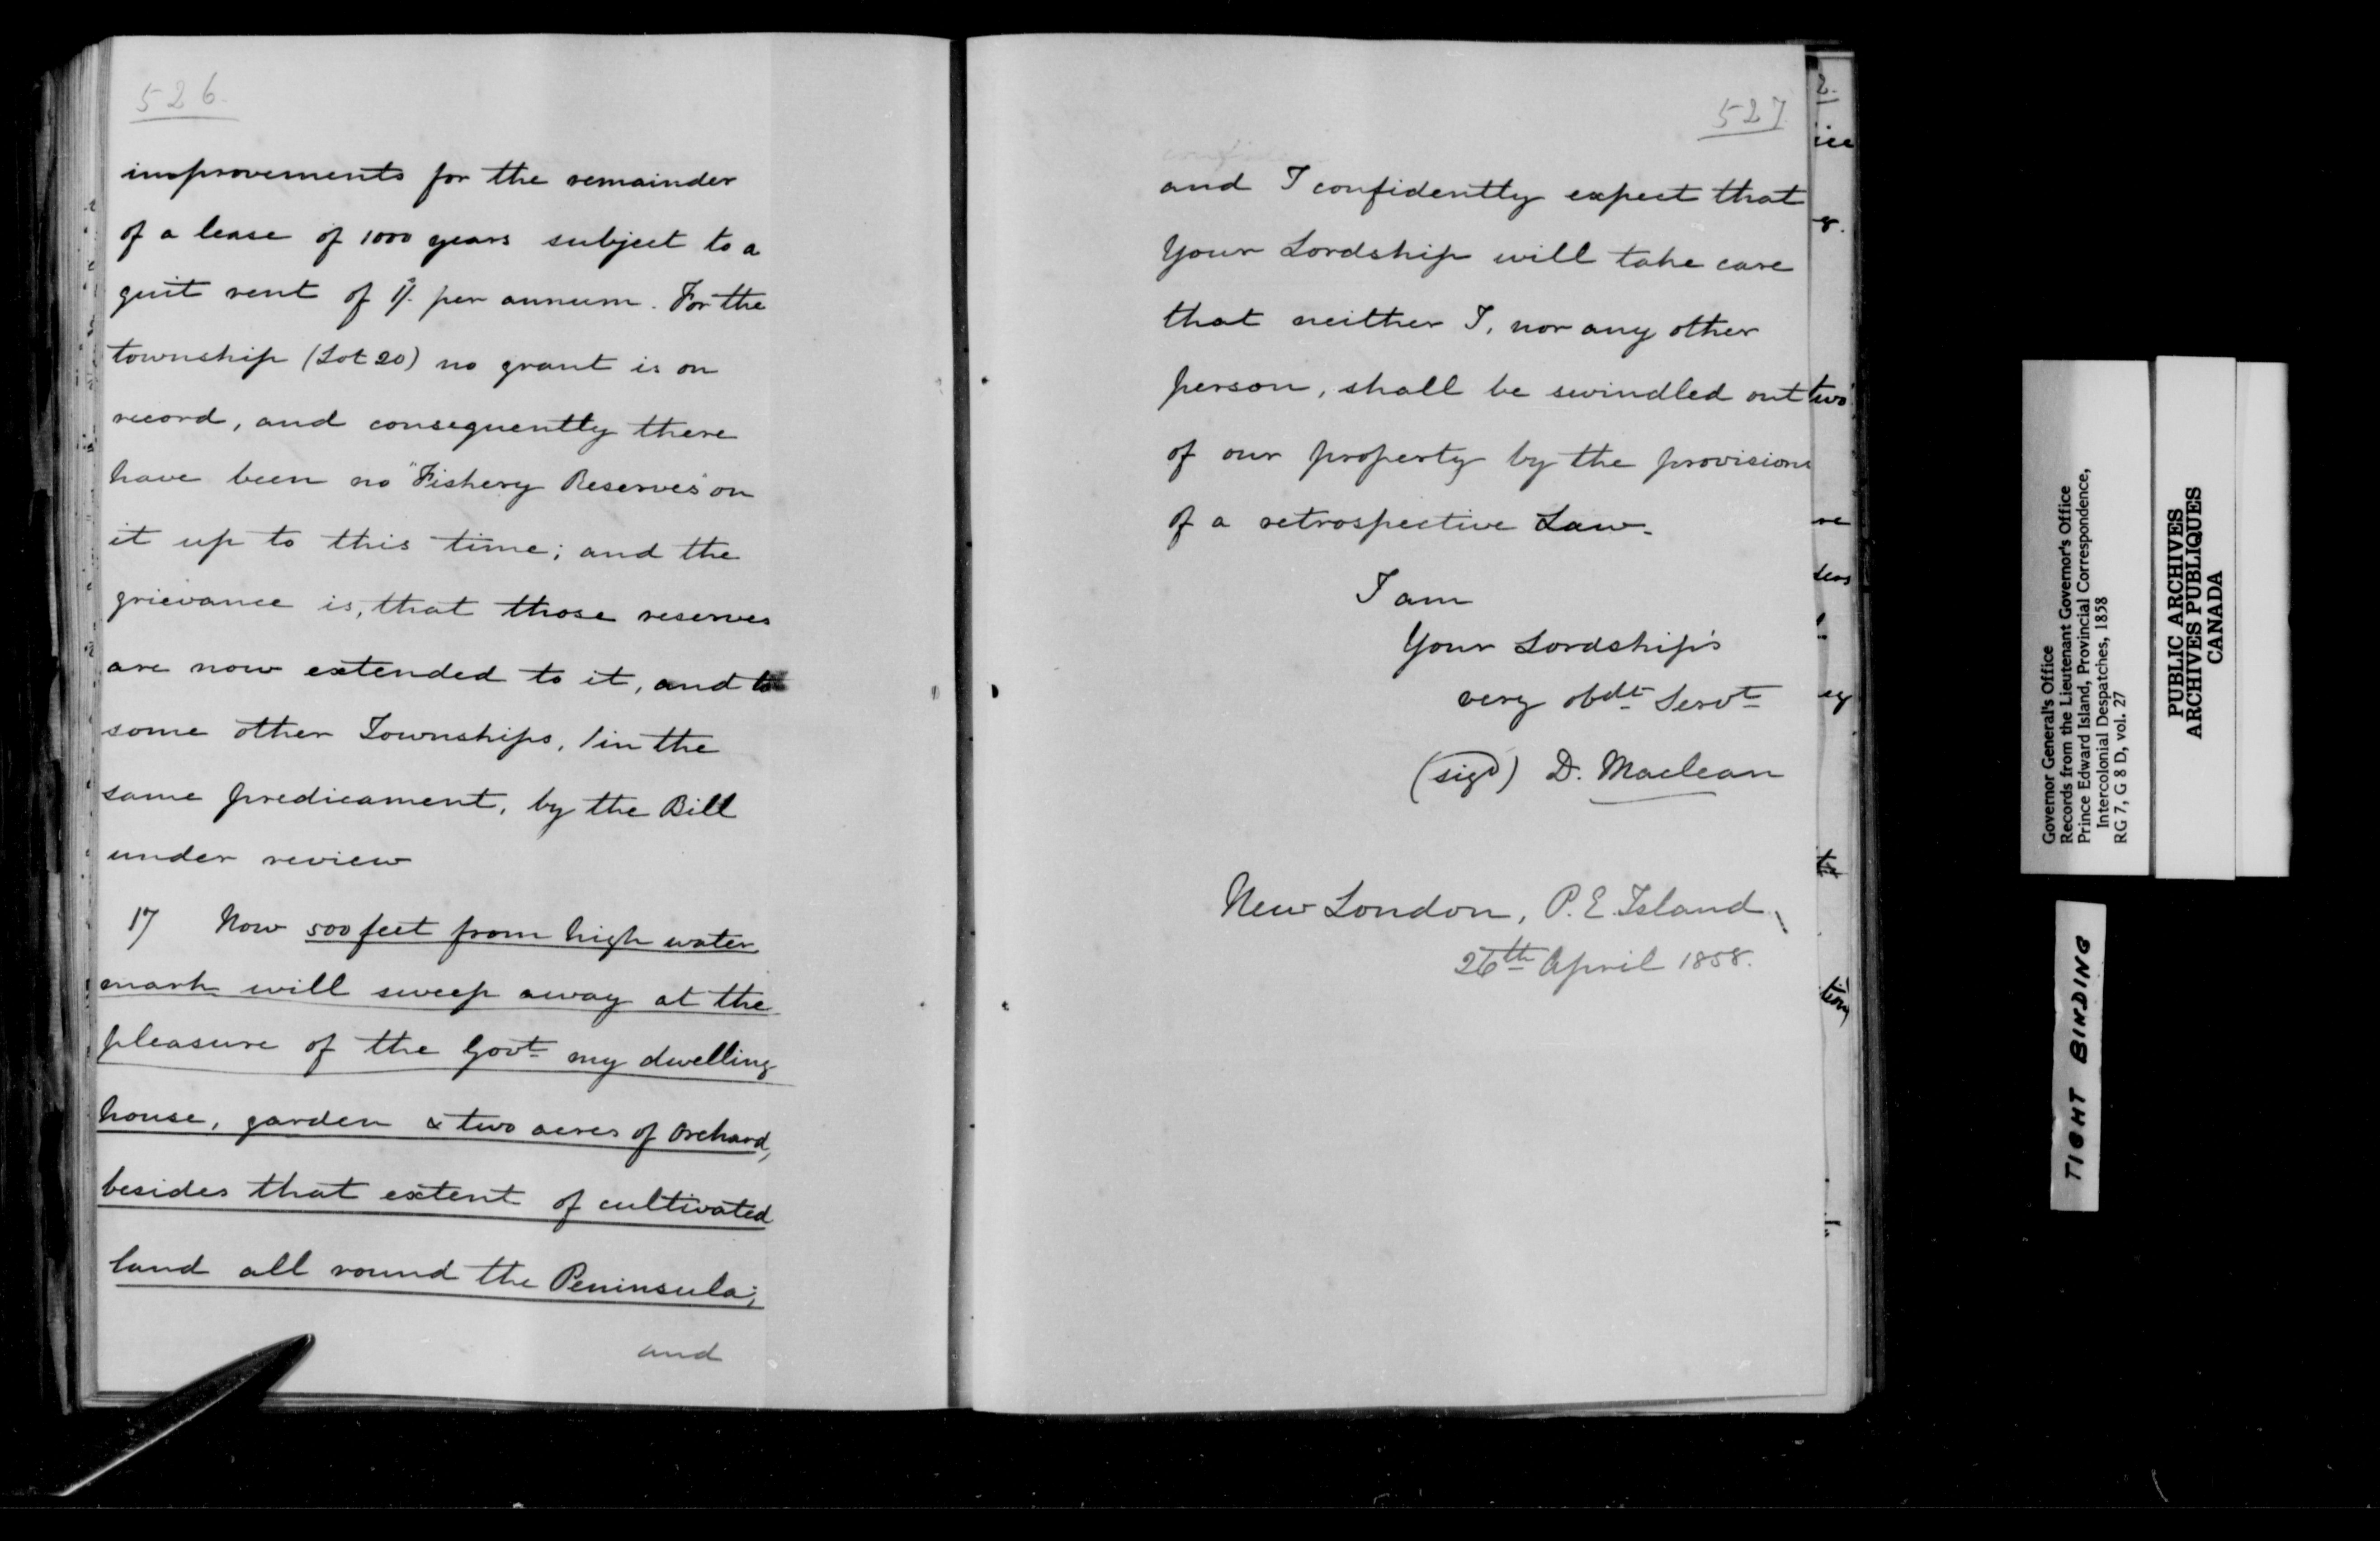 526.
improvements for the remainder
of a lease of 1000 years subject to a
quit rent of 1/. per annum. For the
township (Lot 20) no grant is on
record, and consequently there
have been no "Fishery Reserves" on
it up to this time; and the
grievance is, that those reserves
are now extended to it, and to
some other Townships, in the
same predicament, by the Bill
under review
17 Now 500 feet from high water
mark will sweep away at the
pleasure of the Govt. my dwelling
house, garden & two acres of Orchard,
besides that extent of cultivated
land all round the Peninsula;
and
527
and I confidently expect that
Your Lordship will take care
that neither I, nor any other
person, shall be swindled out
of our property by the provisions
of a retrospective Law.
I am
Your Lordship's
very obdt Servt
(sigd) D. Maclean
New London, P. E. Island
26th April 1858.
Governor General's Office
Records from the Lieutenant Governor's Office
Prince Edward Island, Provincial Correspondence,
Intercolonial Despatches, 1858
RG 7, G 8 D, vol. 27
PUBLIC ARCHIVES
ARCHIVES PUBLIQUES
CANADA
TIGHT BINDING